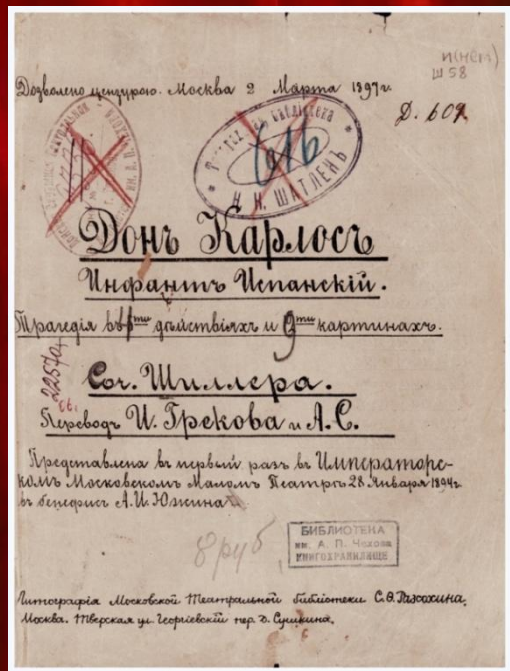 и(нем)
Ш 58
Дозволено цензурою. Москва 2 Марта 1897 г.
Д. 609.
616
Н. Н. ШАТЛЕНЪ
Донъ Карлосъ
Инфантъ Испанскій.
Трагедія въ ти дѣйствіяхъ и 9ти картинахъ.
22570
Соч. Шиллера.
Переводъ И. Грекова и А. С.
Представлена въ первый разъ въ Императорс-
комъ Московскомъ Маломъ Театрѣ 28 Января 1894 г.
въ бенефисъ А. И. Южина
8 руб
БИБЛИОТЕКА
им. А. П. Чехова
КНИГОХРАНИЛИЩЕ
Литографія Московской Театральной библіотеки С. Ѳ. Разсохина.
Москва. Тверская ул. Георгіевскій пер. д. Сушкина.